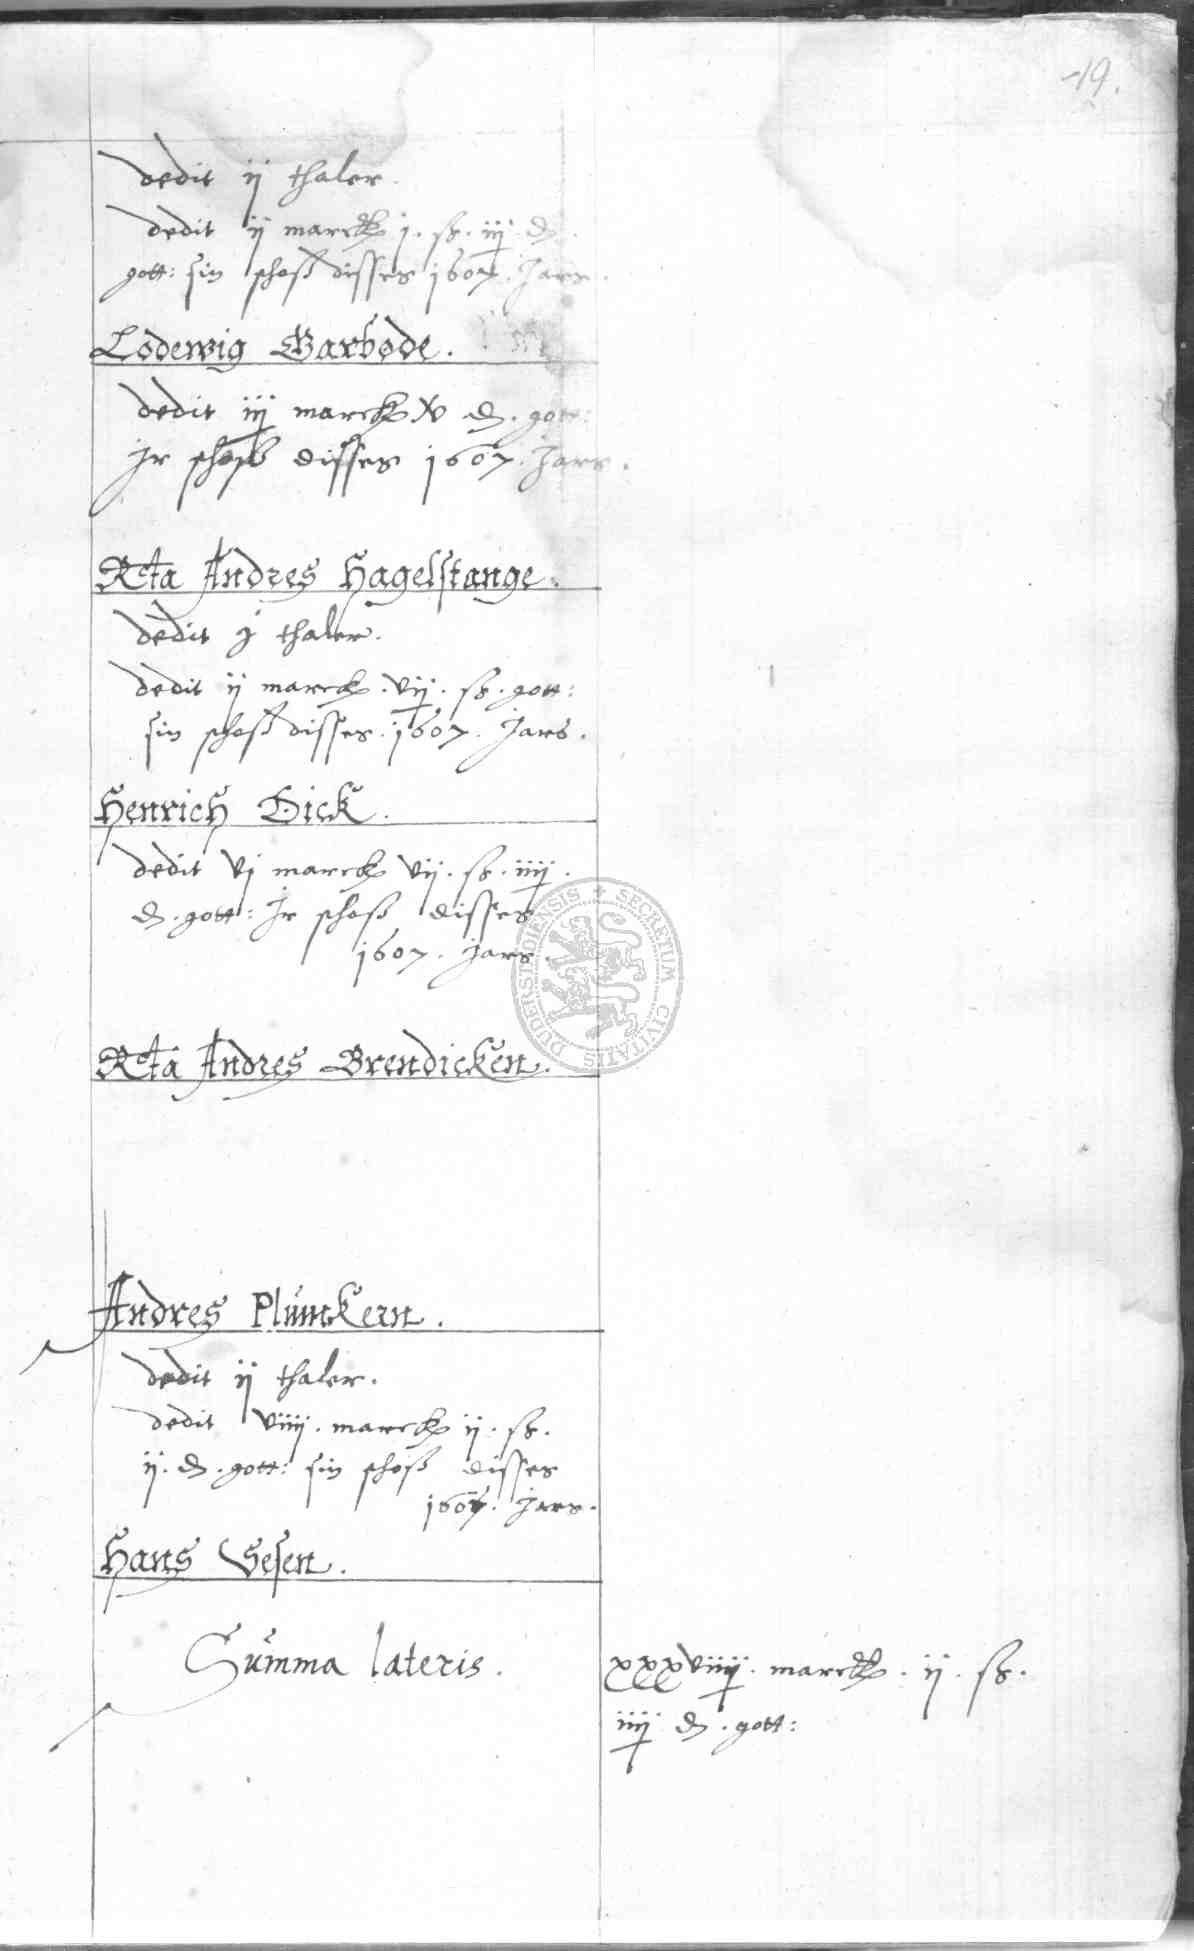 19.
dedit ij thaler.
dedit ij marck j. ß. iiij d.
gott: sin schoß disses 1607. Jars.
Lodewig Barbode.
dedit iiij marck xv d. gott:
Jr schoß disses 1607. Jars.
Rcta Andres Hagelstange.
dedit j thaler.
dedit ij marck. vij. ß. gott:
sin schoß disses. 1607. Jars.
Henrich Dick.
dedit vj marck vij. ß. iiij.
d. gott: Jr schoß disses
1607. Jars.
Rcta Andres Brendicken.
Andres Plümkern.
dedit ij thaler.
dedit viiij. marck ij. ß.
ij. d. gott: sin schoß disses
1607. Jars.
Hans Gesen.
Summa lateris.
xxxviiij. marck. ij. ß.
iiij d. gott:
SECRETUM CIVITATIS DUDERSTADIENSIS